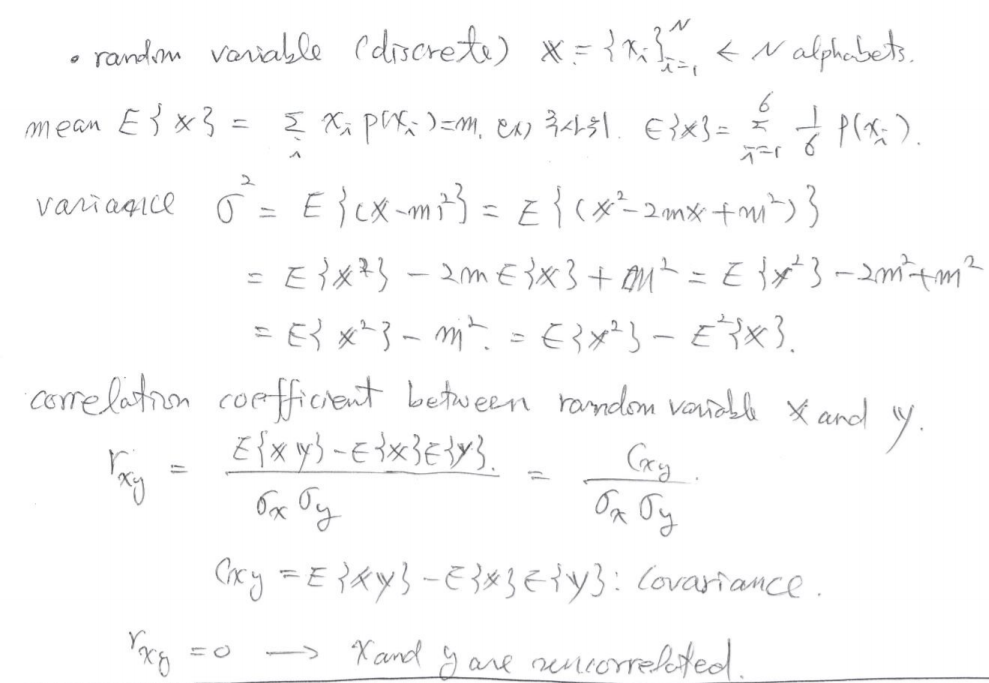 • random variable (discrete) 𝕏 = {x_i}_{i=1}^N ← N alphabets.
mean E{𝕏} = Σ_i x_i p(x_i) = m. ex) 주사위. E{𝕏} = Σ_{i=1}^6 1/6 p(x_i).
variance σ² = E{(𝕏-m)²} = E{(𝕏²-2m𝕏+m²)}
= E{𝕏²} - 2mE{𝕏} + m² = E{𝕏²} - 2m²+m²
= E{𝕏²} - m². = E{𝕏²} - E²{𝕏}.
correlation coefficient between random variable 𝕏 and 𝕐.
r_xy = (E{𝕏𝕐} - E{𝕏}E{𝕐}.)/(σ_x σ_y) = C_xy/(σ_x σ_y).
C_xy = E{𝕏𝕐} - E{𝕏}E{𝕐}: Covariance.
r_xy = 0 → x and y are uncorrelated.